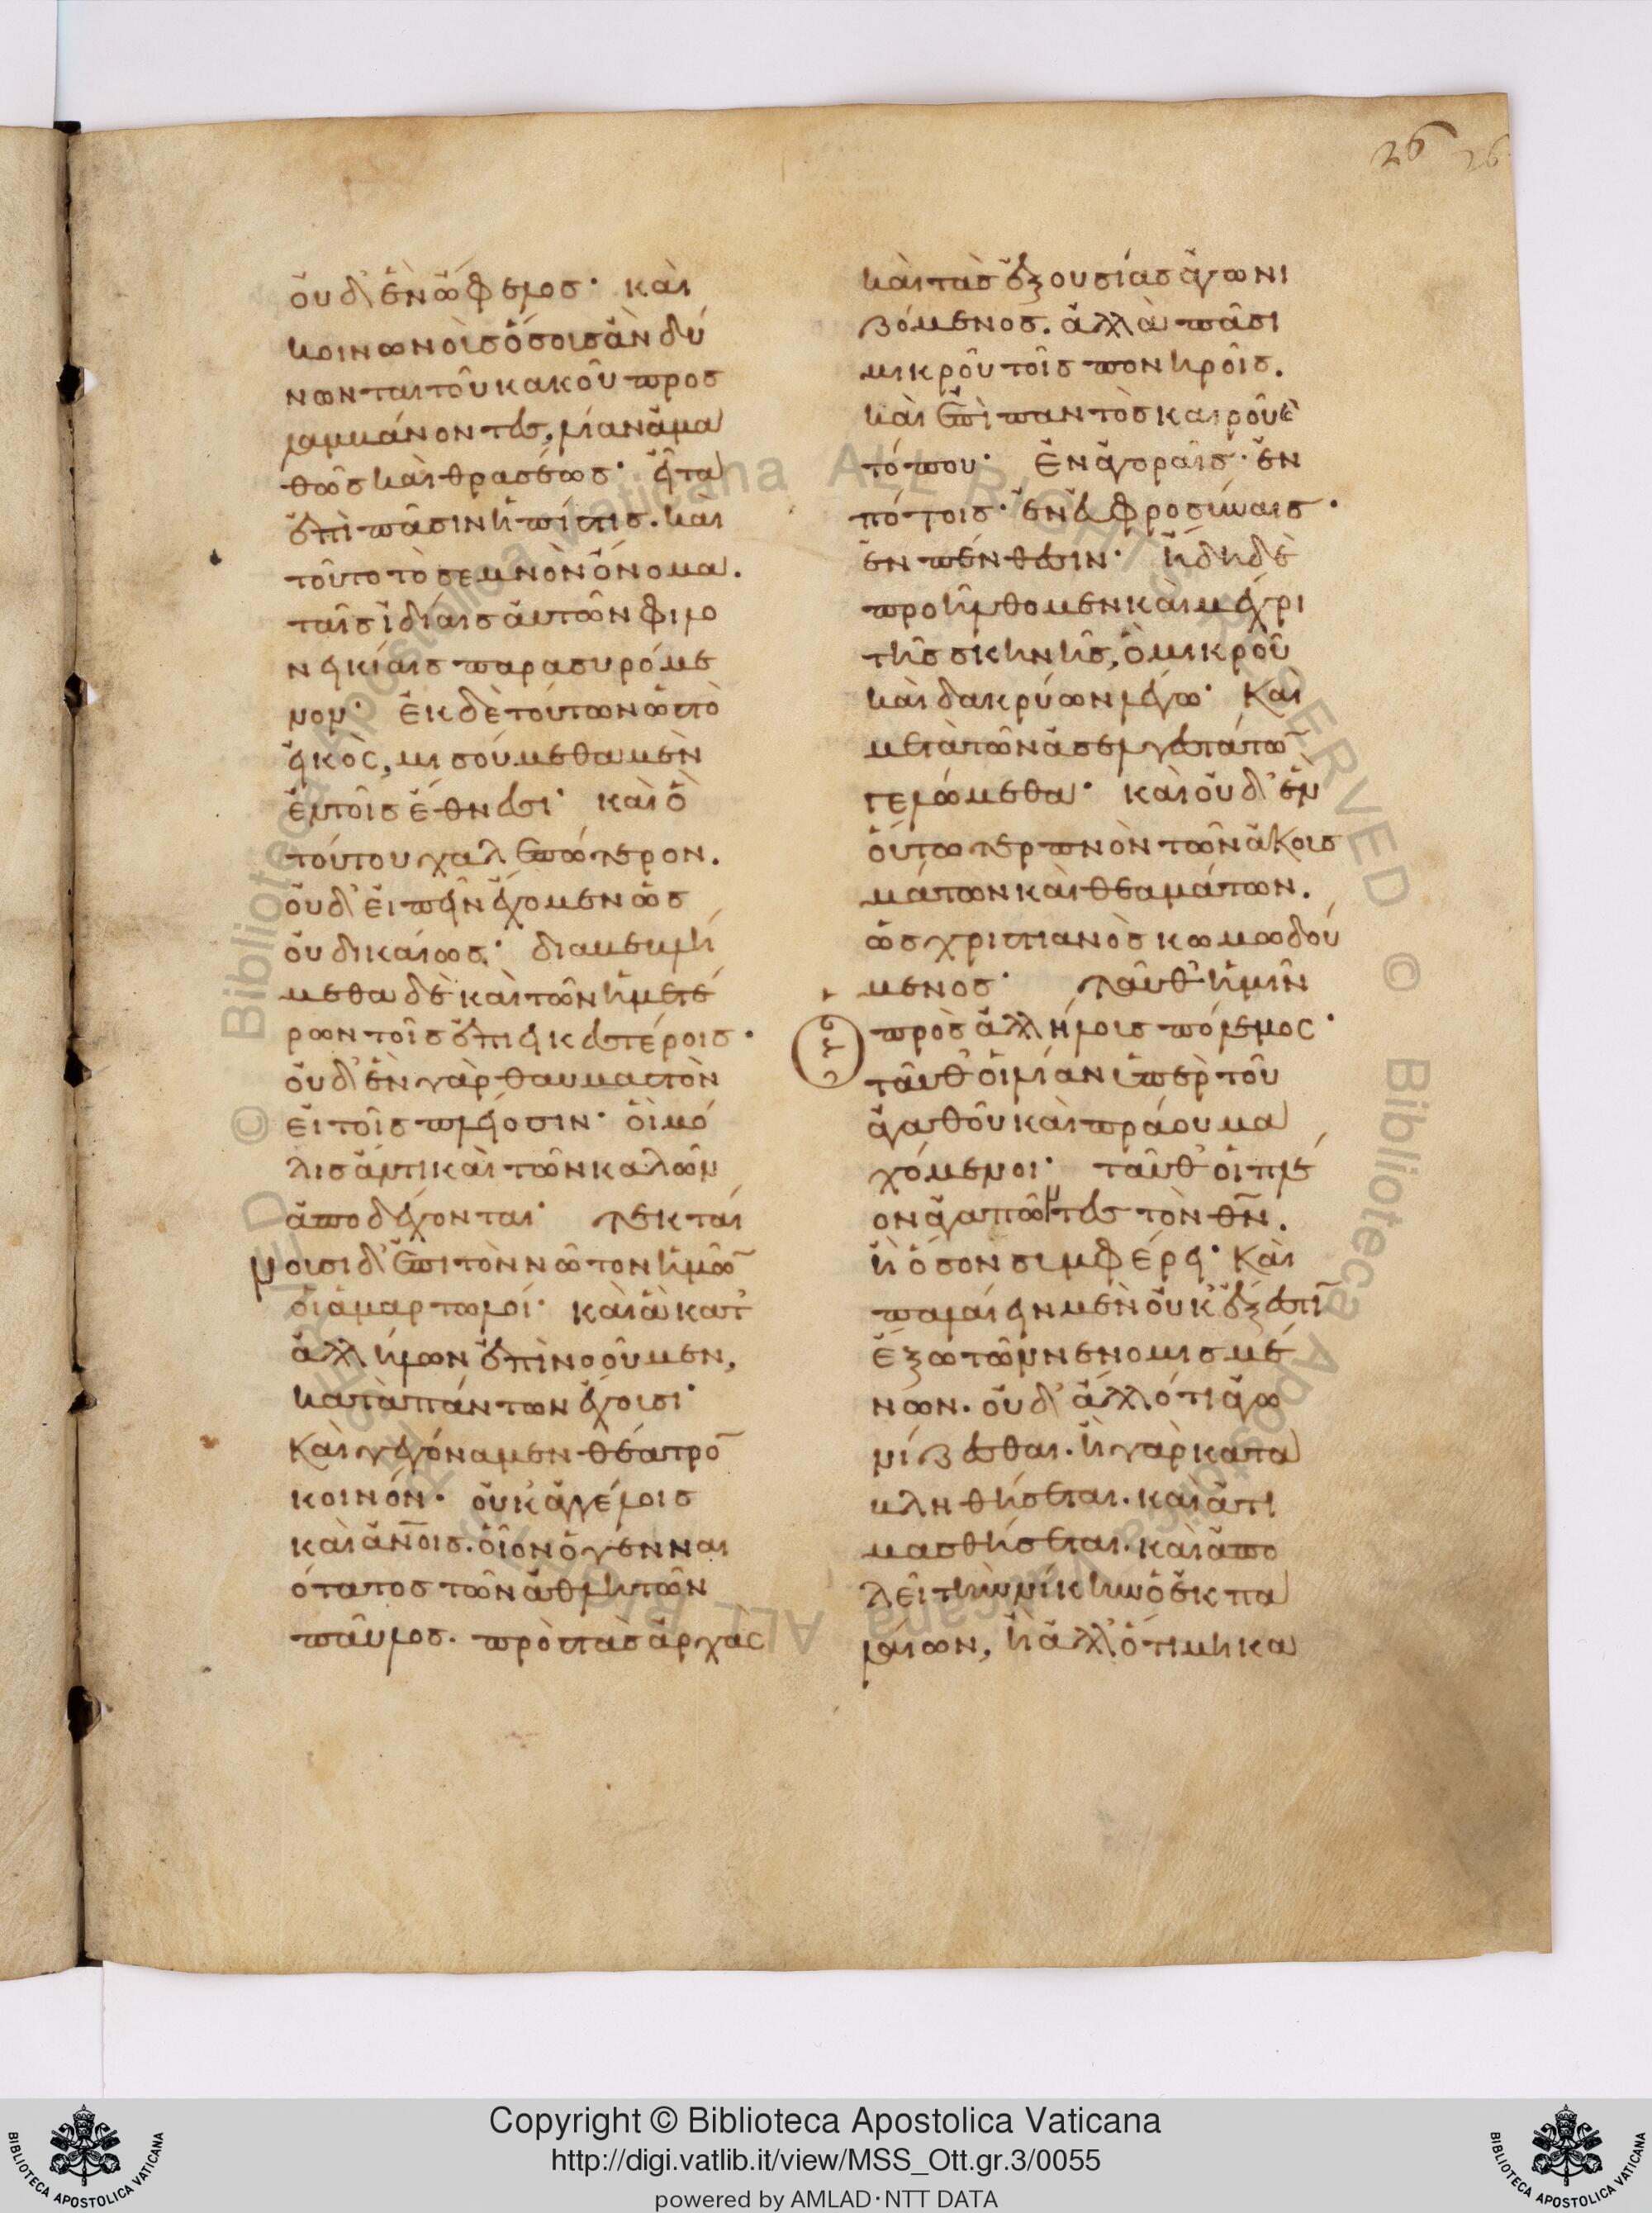 26 26
οὐδὲν ὄφελος· καὶ
κοινωνοὺς ὅσους ἂν δύ
νωνται τοῦ κακοῦ προσ
λαμβάνοντες, λίαν ἀμα
θῶς καὶ θρασέως· εἶτα
ἐπὶ πᾶσιν ἡ πίστις. καὶ
τοῦτο τὸ σεμνὸν ὄνομα.
ταῖς ἰδίαις αὐτῶν φιλο
νεικίαις παρασυρόμε
νον· Ἐκ δὲ τούτων ὡς τὸ
εἰκὸς, μισούμεθα μὲν
ἐν τοῖς ἔθνεσι· καὶ ὃ
τούτου χαλεπώτερον.
οὐδ' εἰπεῖν ἔχομεν ὡς
οὐ δικαίως· διαβεβλή
μεθα δὲ καὶ τῶν ἡμετέ
ρων τοῖς ἐπιεικεστέροις·
οὐδὲν γὰρ θαυμαστὸν
εἰ τοῖς πλείοσιν· οἳ μό
λις ἄν τι καὶ τῶν καλῶν
ἀποδέχονται· τεκταί
νουσι δ' ἐπὶ τὸν νῶτον ἡμῶν
οἱ ἁμαρτωλοί· καὶ ἃ κατ'
ἀλλήλων ἐπινοοῦμεν,
κατὰ πάντων ἔχουσι·
Καὶ γεγόναμεν θέατρο̄
κοινόν· οὐκ ἀγγέλοις
καὶ ἀν̅οις. οἷον ὁ γενναι
ότατος τῶν ἀθλητῶν
παῦλος. πρὸς τὰς ἀρχὰς
καὶ τὰς ἐξουσίας ἀγωνι
ζόμενος. ἀλλὰ πᾶσι
μικροῦ τοῖς πονηροῖς.
καὶ ἐπὶ παντὸς καιροῦ κ
τόπου· Ἐν ἀγοραῖς· ἐν
πότοις· ἐν εὐφροσύναις·
ἐν πένθεσιν· ἤδη δὲ
προήλθομεν καὶ μέχρι
τῆς σκηνῆς, ὃ μικροῦ
καὶ δακρύων λέγω· Καὶ
μετὰ τῶν ἀσελγεστάτω̄
γελώμεθα· καὶ οὐδὲν
οὕτω τερπνὸν τῶν ἀκουσ
μάτων καὶ θεαμάτων.
ὡς χριστιανὸς κωμωδού
μενος· Ταῦθ' ἡμῖν
πρὸς ἀλλήλους πόλεμος·
ταῦθ' οἱ λίαν ὑπὲρ τοῦ
ἀγαθοῦ καὶ πράου μα
χόμενοι· ταῦθ' οἱ πλέ
ον ἀγαπῶντες τὸν θ̅ν̅.
ἢ ὅσον συμφέρει· Καὶ
παλαίειν μὲν οὐκ ἔξεστῑ
ἔξω τῶν νενομισμέ
νων. οὐδ' ἄλλό τι ἀγω
νίζεσθαι. ἢ γὰρ κατα
βληθήσεται. καὶ ἀτι
μασθήσεται. καὶ ἀπο
λεῖ τὴν νίκην ὁ ἐκ πα
λαίων, ἢ ἄλλ' ὁτιμηκα
Copyright © Biblioteca Apostolica Vaticana
http://digi.vatlib.it/view/MSS_Ott.gr.3/0055
powered by AMLAD·NTT DATA
BIBLIOTECA APOSTOLICA VATICANA
BIBLIOTECA APOSTOLICA VATICANA